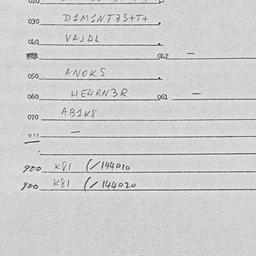 030 D1M1NT3S+T+
040 VAJDL
042 -
050 ANOKS
060 HE4RN3R 061 -
070 AB1K8
-
900 K81 (/144010
900 K81 (/144020